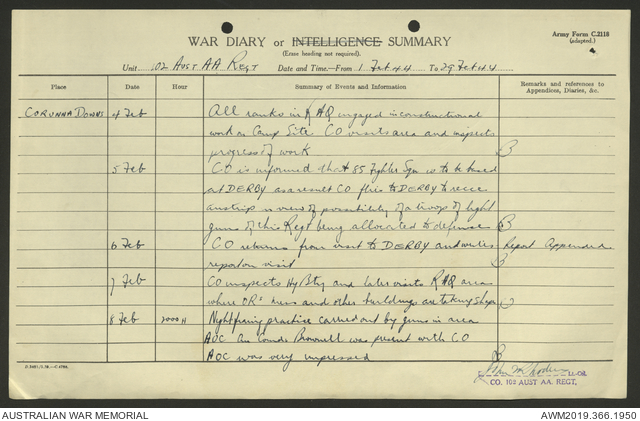 Army Form C.2118
(adapted.)
WAR DIARY or INTELLIGENCE SUMMARY
(Erase heading not required).
Unit 102 AUST AA REGT Date and Time—From 1 Feb 44 To 29 Feb 44
Place Date Hour Summary of Events and Information Remarks and references to Appendices, Diaries, &c.
CORUNNA DOWNS 4 Feb All ranks in RHQ engaged in constructional
work on Camp Site CO visits area and inspects
progress of work
5 Feb CO is informed that 85 Fighter Sqn is to be based
at DERBY as a result CO flies to DERBY to recce
airstrip in view of possibility of a troop of light
guns of this Regt being allocated to defence
6 Feb CO returns from visit to DERBY and writes Report Appended
report on visit
7 Feb CO inspects Hy Bty and later visits RHQ areas
where ORs mess and other buildings are taking shape
8 Feb 2000H Night firing practice carried out by guns in area
AOC Air Comdr Brownell was present with CO
AOC was very impressed
LT-COL
CO. 102 AUST AA. REGT.
AUSTRALIAN WAR MEMORIAL
AWM2019.366.1950